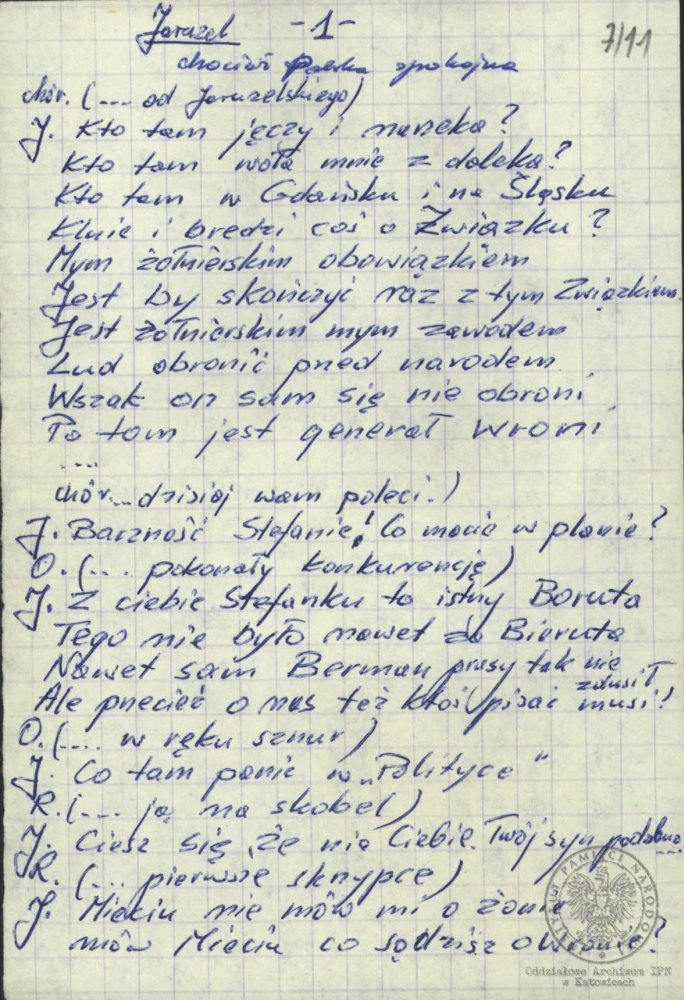 Jaruzel -1- 7/11
chociaż Polska spokojna
chór. (.... od Jaruzelskiego)
J. Kto tam jęczy i narzeka?
Kto tam woła mnie z daleka?
Kto tam w Gdańsku i na Śląsku
Kluie i bredzi coś o Związku?
Mym żołnierskim obowiązkiem
Jest by skończyć raz z tym Związkiem.
Jest żołnierskim mym zawodem
Lud obronić przed narodem
Wszak on sam się nie obroni
Po tom jest generał Wroni
....
chór... dzisiaj wam poleci.)
J. Baczność Stefanie! Co macie w planie?
O. (... pokonały konkurencję)
J. Z ciebie Stefanku to istny Boruta
Tego nie było nawet za Bieruta
Nawet sam Berman prasy tak nie zdusił
Ale przecież o nas też ktoś pisać musi!
O. (.... w ręku sznur)
J. Co tam panie w „Polityce"
R. (.... ja na skobel)
J. Ciesz się, że nie Ciebie. Twój syn podobno...
R. (... pierwsze skrzypce)
J. Mieciu nie mów mi o żonie
mów Mieciu co sądzisz o Wronie?
INSTYTUT PAMIĘCI NARODOWEJ
Oddziałowe Archiwum IPN
w Katowicach